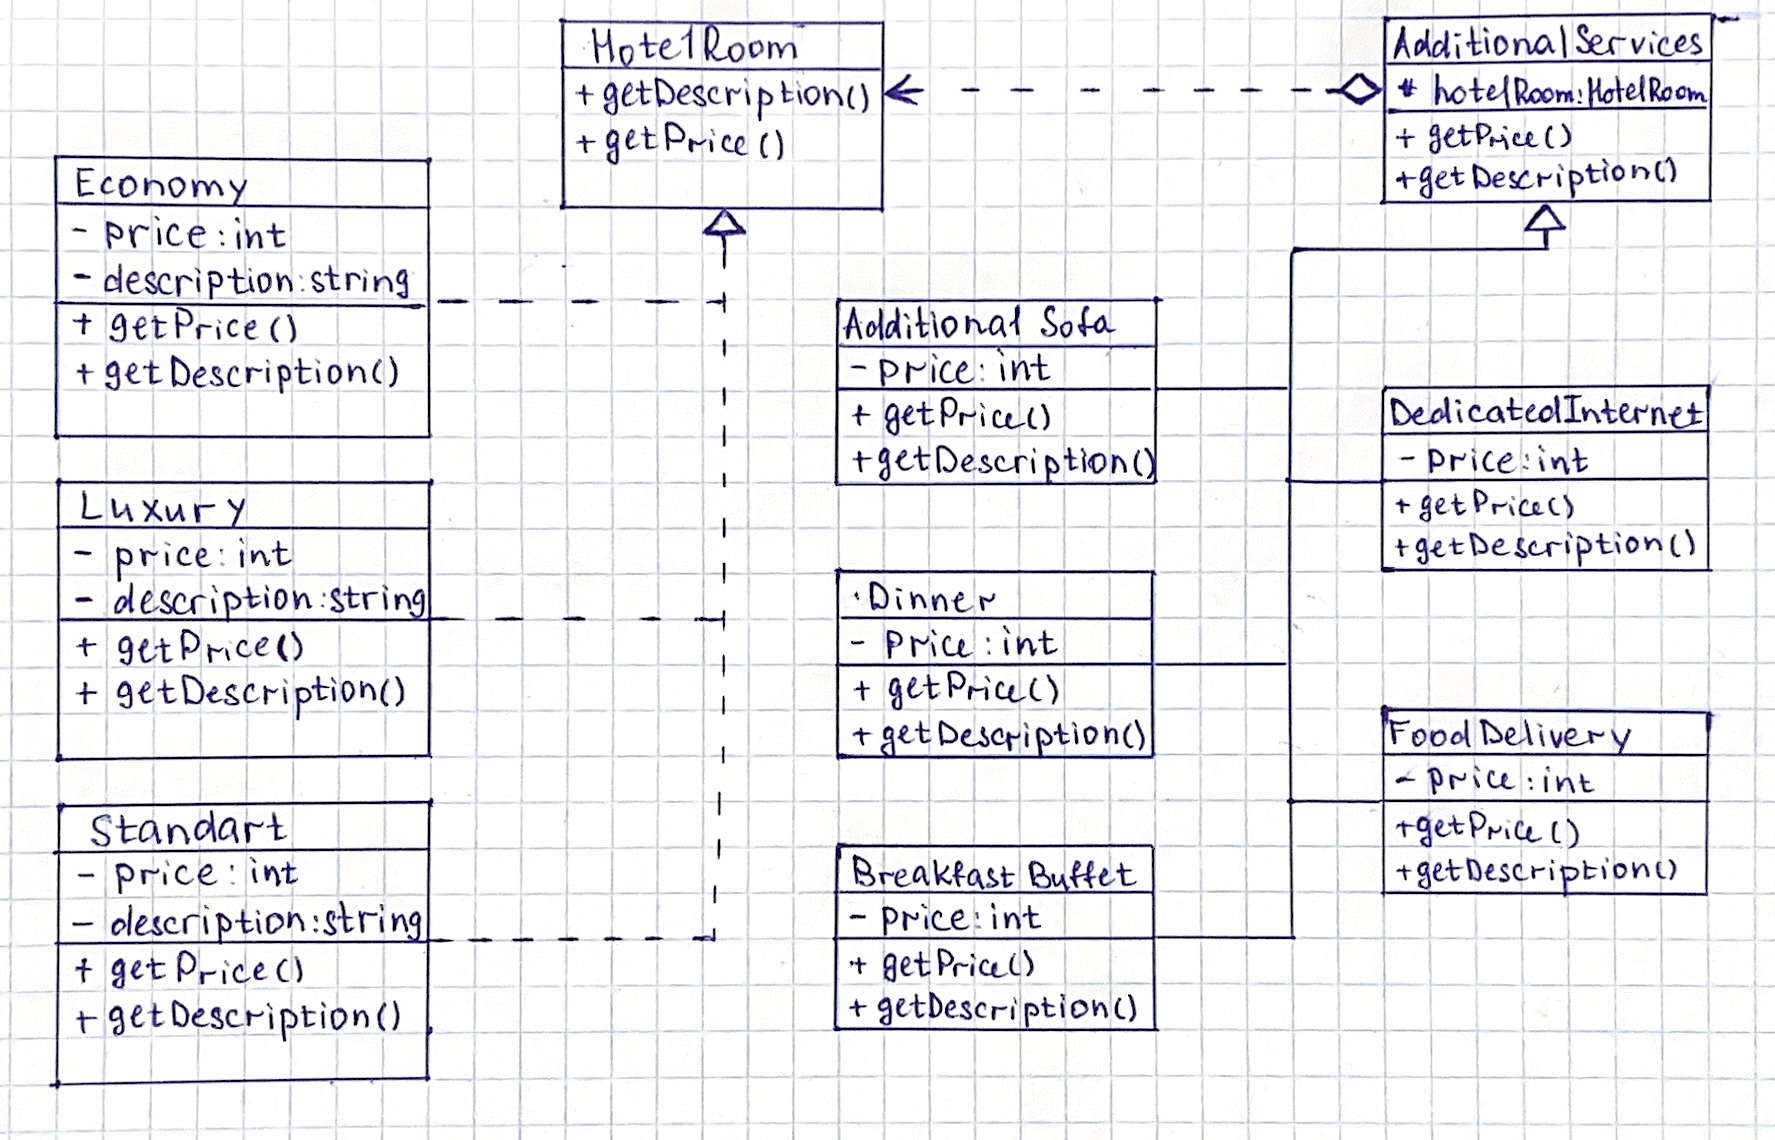 HotelRoom
+ getDescription()
+ getPrice()
AdditionalServices
# hotelRoom:HotelRoom
+ getPrice()
+ getDescription()
Economy
- price: int
- description: string
+ getPrice()
+ getDescription()
Luxury
- price: int
- description: string
+ getPrice()
+ getDescription()
Standart
- price: int
- description: string
+ getPrice()
+ getDescription()
Additional Sofa
- price: int
+ getPrice()
+ getDescription()
Dinner
- price: int
+ getPrice()
+ getDescription()
Breakfast Buffet
- price: int
+ getPrice()
+ getDescription()
DedicatedInternet
- price: int
+ getPrice()
+ getDescription()
FoodDelivery
- price: int
+ getPrice()
+ getDescription()